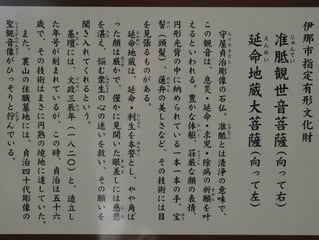 伊那市指定有形文化財
准胝観世音菩薩(向って右)
延命地蔵大菩薩(向って左)
守屋貞治彫像の石仏。准胝とは清浄の意味で、
この観音は、息災・延命・求児・除病の祈願を叶
えるといわれる。豊かな体軀、荘厳な顔の表情、
円形光背の中に納められている一本一本の手、宝
髻(頭髪)、蓮弁の美しさなど、その技術には目
を見張るものがある。
延命地蔵は、延命・利生を本誓とし、やや角ば
った顔は厳かで、僅かに見開いた眼差しには慈悲
を湛え、悩む衆生の心の迷いを救い、その願いを
聞き入れてくれるという。
基壇には、文政三庚辰年(一八二〇)と、造立し
た年号が刻まれているが、この時、貞治は五十六
歳で、その技術は速さと円熟の境地に達していた。
また、裏山の住職墓地には、貞治四十代彫像の
聖観音像がひっそりと佇んでいる。